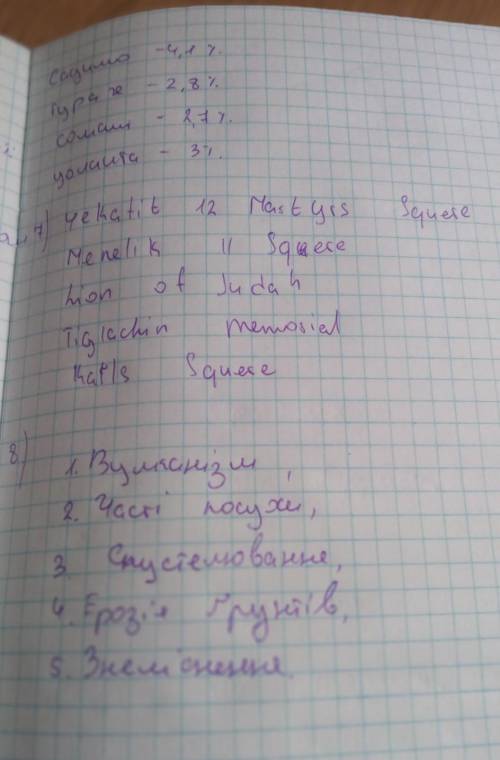 сидимо - 4,1%.
гураж - 2,8%.
сомали - 2,7%.
уолаита - 3%.
7) Yekatit 12 Martyrs Squere
Menelik II Squere
Lion of Judah
Tiglachin memorial
Karls Squere
8)
1. Вулканізм,
2. Часті посухи,
3. Спустелювання,
4. Ерозія ґрунтів,
5. Знеліснення.